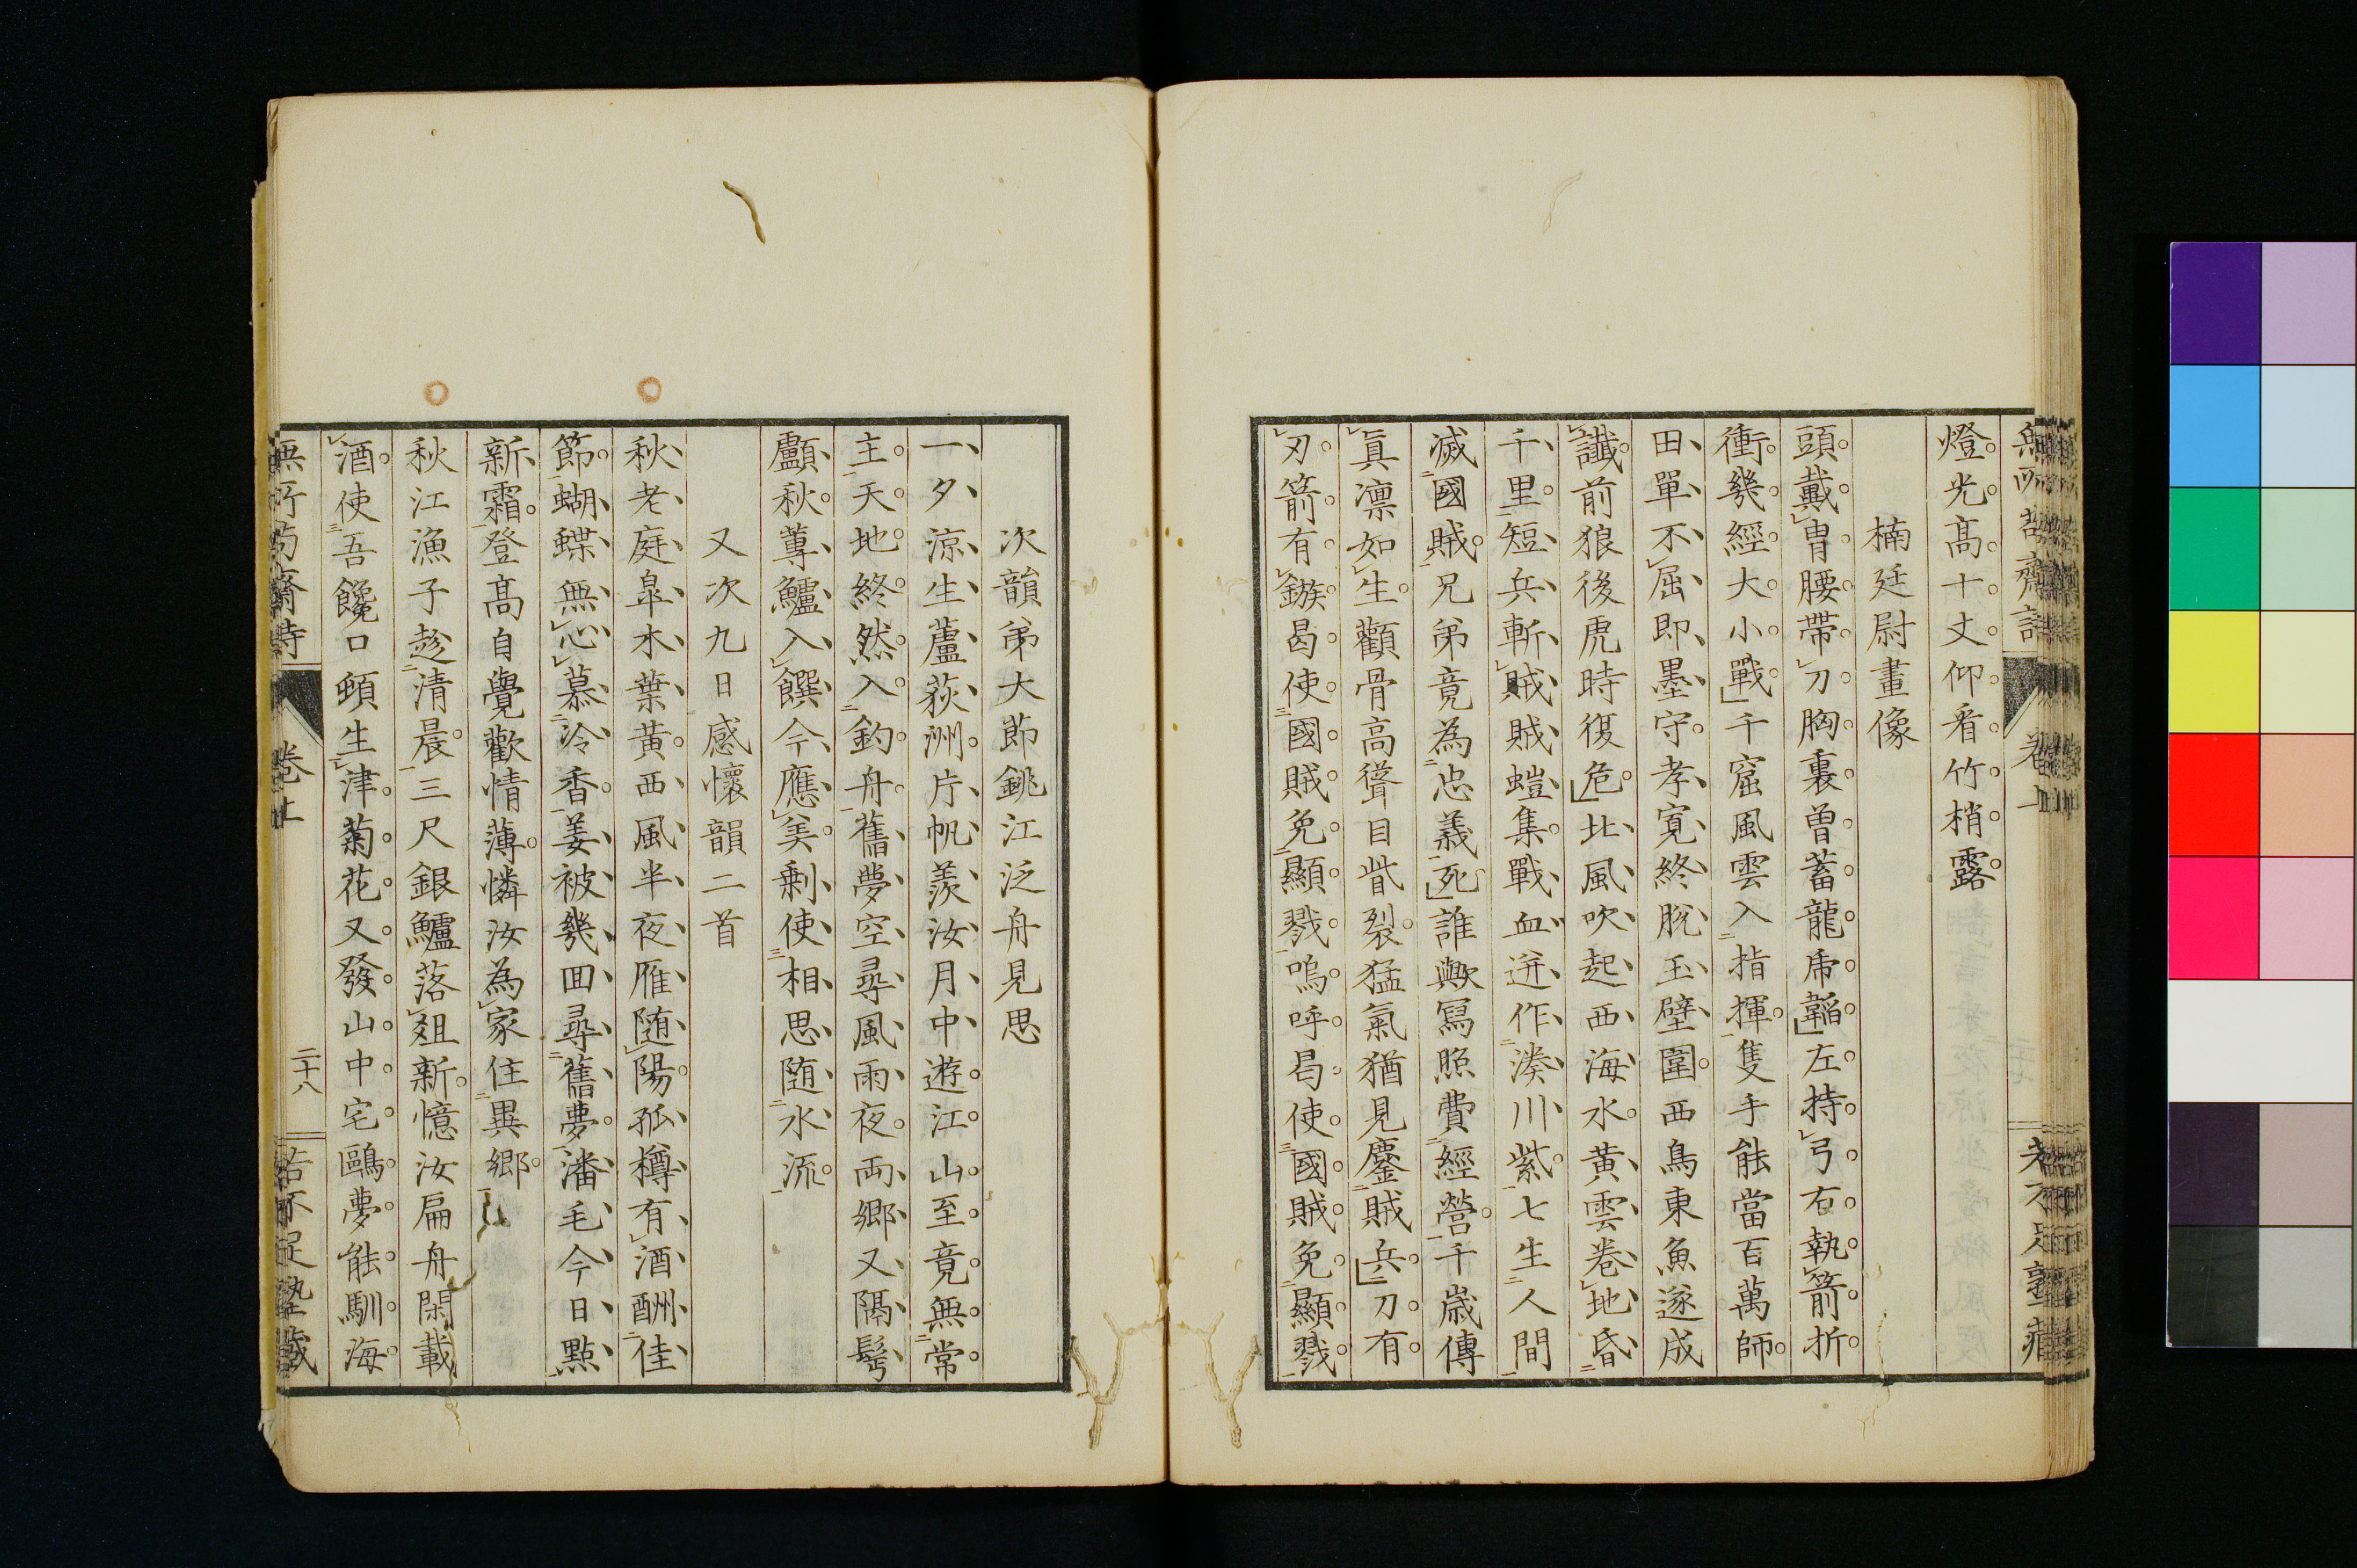 燈光高十丈仰看竹梢露
楠廷尉畫像
頭戴冑腰帶刀胸裏曾蓄龍虎韜左持弓右執箭折
衝幾經大小戰千窟風雲入指揮隻手能當百萬師
田單不屈即墨守孝寬終脫玉壁圍西鳥東魚遂成
讖前狼後虎時復危北風吹起西海水黃雲卷地昏
千里短兵斬賊賊螘集戰血迸作湊川紫七生人間
滅國賊兄弟竟為忠義死誰歟寫照費經營千歲傳
眞凛如生顴骨高聳目眥裂猛氣猶見鏖賊兵刀有
刃箭有鏃曷使國賊免顯戮嗚呼曷使國賊免顯戮
次韻弟大節銚江泛舟見思
一夕涼生蘆荻洲片帆羨汝月中遊江山至竟無常
主天地終然入釣舟舊夢空尋風雨夜兩鄉又隔髩
顱秋蓴鱸入饌今應美剩使相思隨水流
又次九日感懷韻二首
秋老庭皐木葉黃西風半夜雁隨陽孤樽有酒酬佳
節蝴蝶無心慕冷香姜被幾回尋舊夢潘毛今日點
新霜登高自覺歡情薄憐汝為家住異鄉
秋江漁子趁清晨三尺銀鱸落俎新憶汝扁舟閑載
酒使吾饞口頓生津菊花又發山中宅鷗夢能馴海
無所苟齋詩 卷上 二十八 若不足塾藏